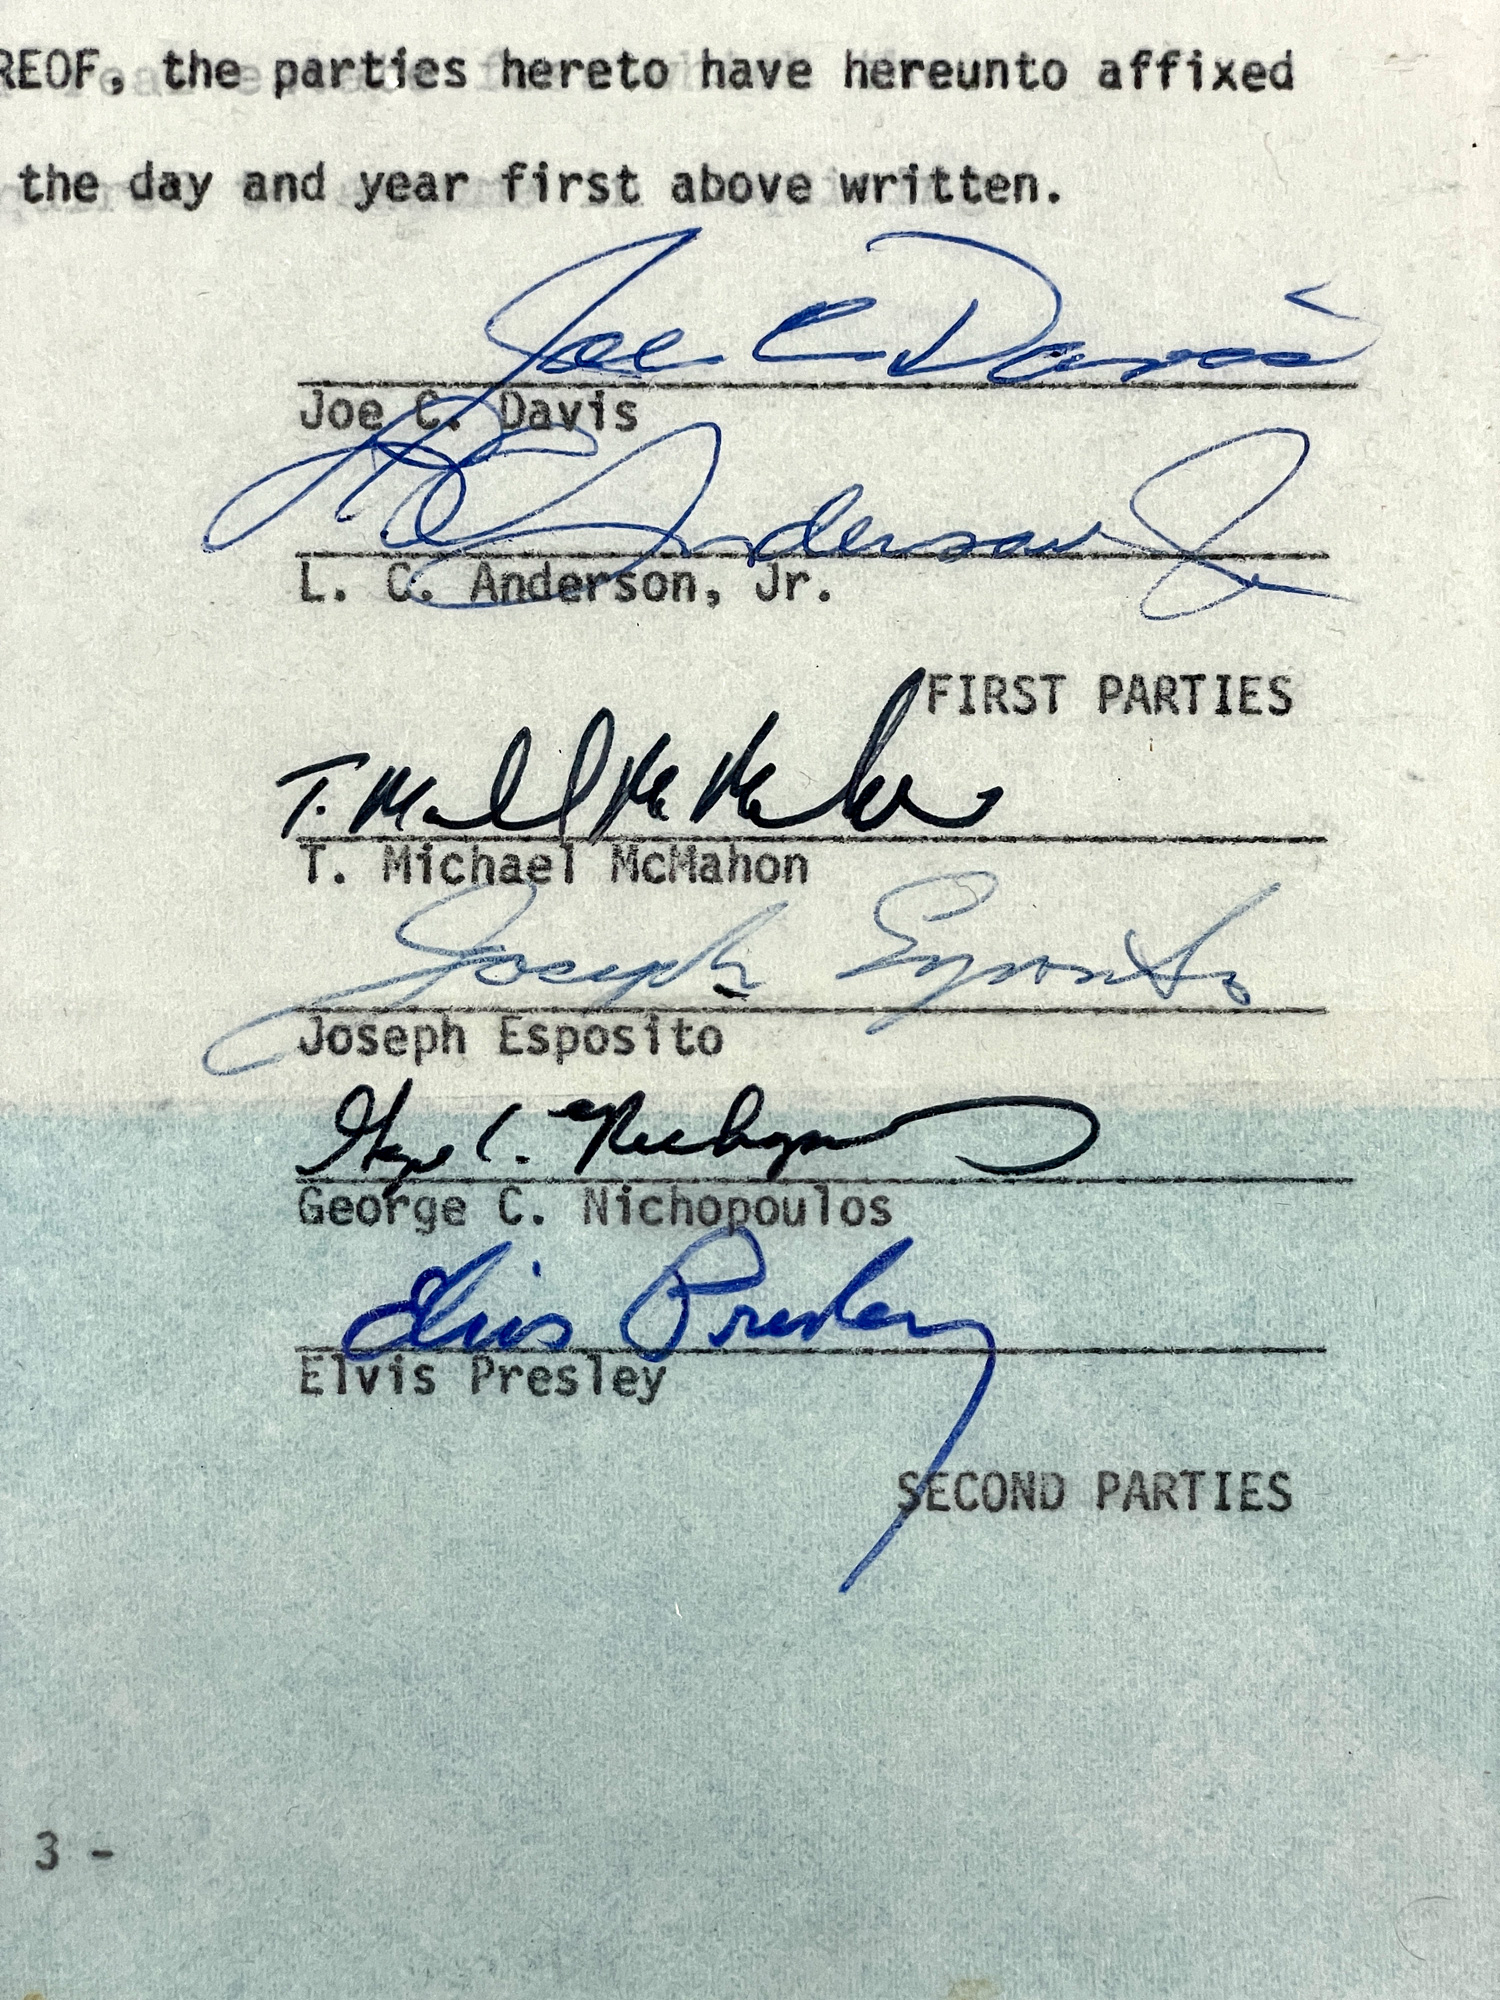 REOF, the parties hereto have hereunto affixed
the day and year first above written.
Joe C Davis
Joe C. Davis
L C Anderson Jr
L. C. Anderson, Jr.
FIRST PARTIES
T. Michael McMahon
T. Michael McMahon
Joseph Esposito
Joseph Esposito
George C. Nichopoulos
George C. Nichopoulos
Elvis Presley
Elvis Presley
SECOND PARTIES
3 -